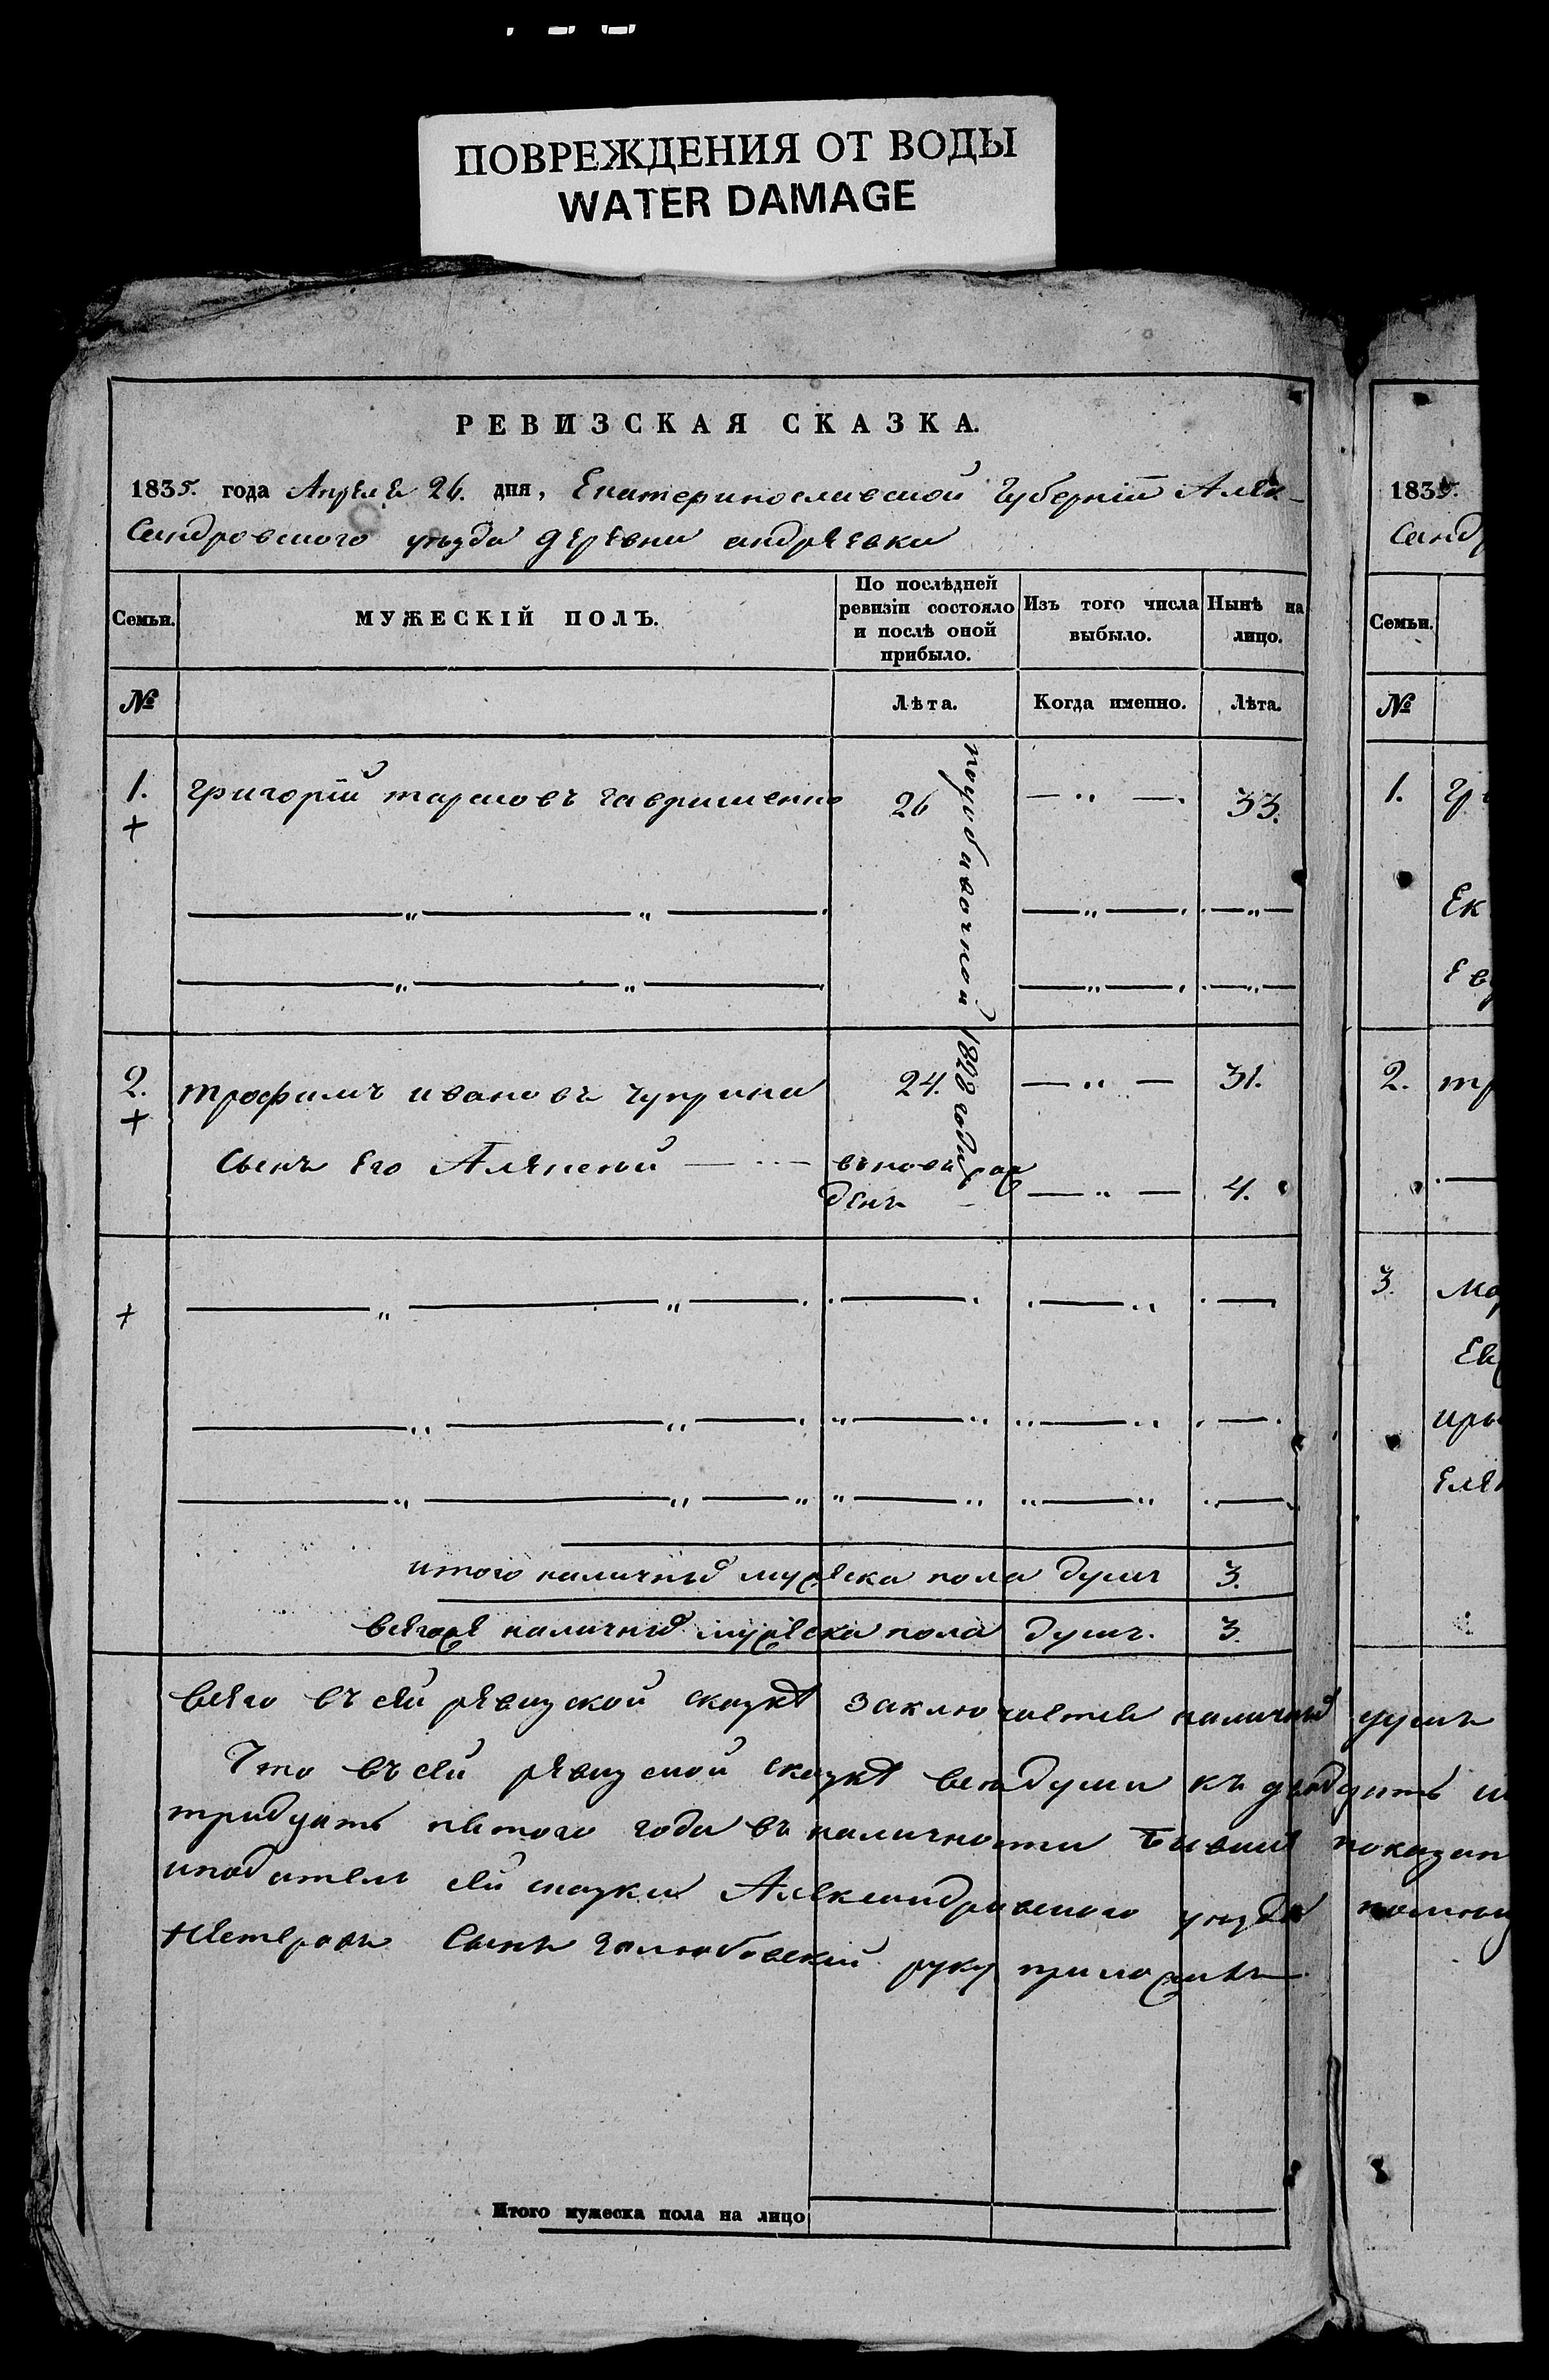 ПОВРЕЖДЕНИЯ ОТ ВОДЫ
WATER DAMAGE
РЕВИЗСКАЯ СКАЗКА.
1835. года Апреля 26. дня, Екатеринославской Губерніи Алек-
сандровского уезда деревни андреевки
Семьи.
МУЖЕСКІЙ ПОЛЪ.
По послѣдней ревизіи состояло и послѣ оной прибыло.
Изъ того числа выбыло.
Нынѣ на лицо.
№
Лѣта.
Когда именно.
Лѣта.
1. григорій тарасовъ 26 33.
1828 года
2. трофимъ ивановъ чуприна 24. 31.
сынъ его Алексей вновь рож
денъ 4.
итого наличныхъ мужеска пола душъ 3.
всегоже наличныхъ мужеска пола душъ. 3.
всего въ сей ревизской сказке заключается наличныхъ душъ
Что въ сей ревизской сказке все души къ двадцать
тридцать пятого года въ наличности бывшие показан
сей сказки Александровского уезда
Петровъ сынъ голюбовскій руку приложилъ
Итого мужеска пола на лицо
1835.
Санд
Семьи.
№
1. Гр
Ек
Ев
2. тр
3. Мар
Ев
ири
Елен